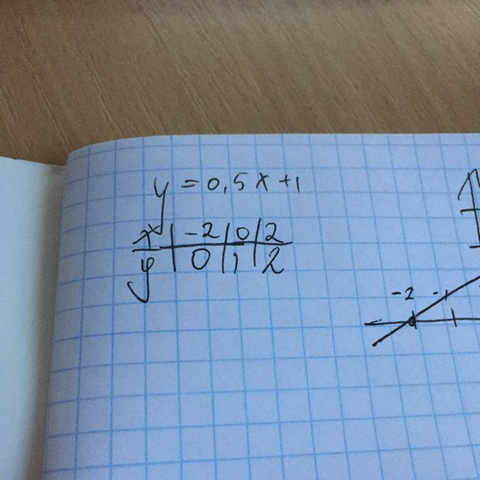 y = 0,5x+1
x | -2 | 0 | 2
y | 0 | 1 | 2
-2 -1